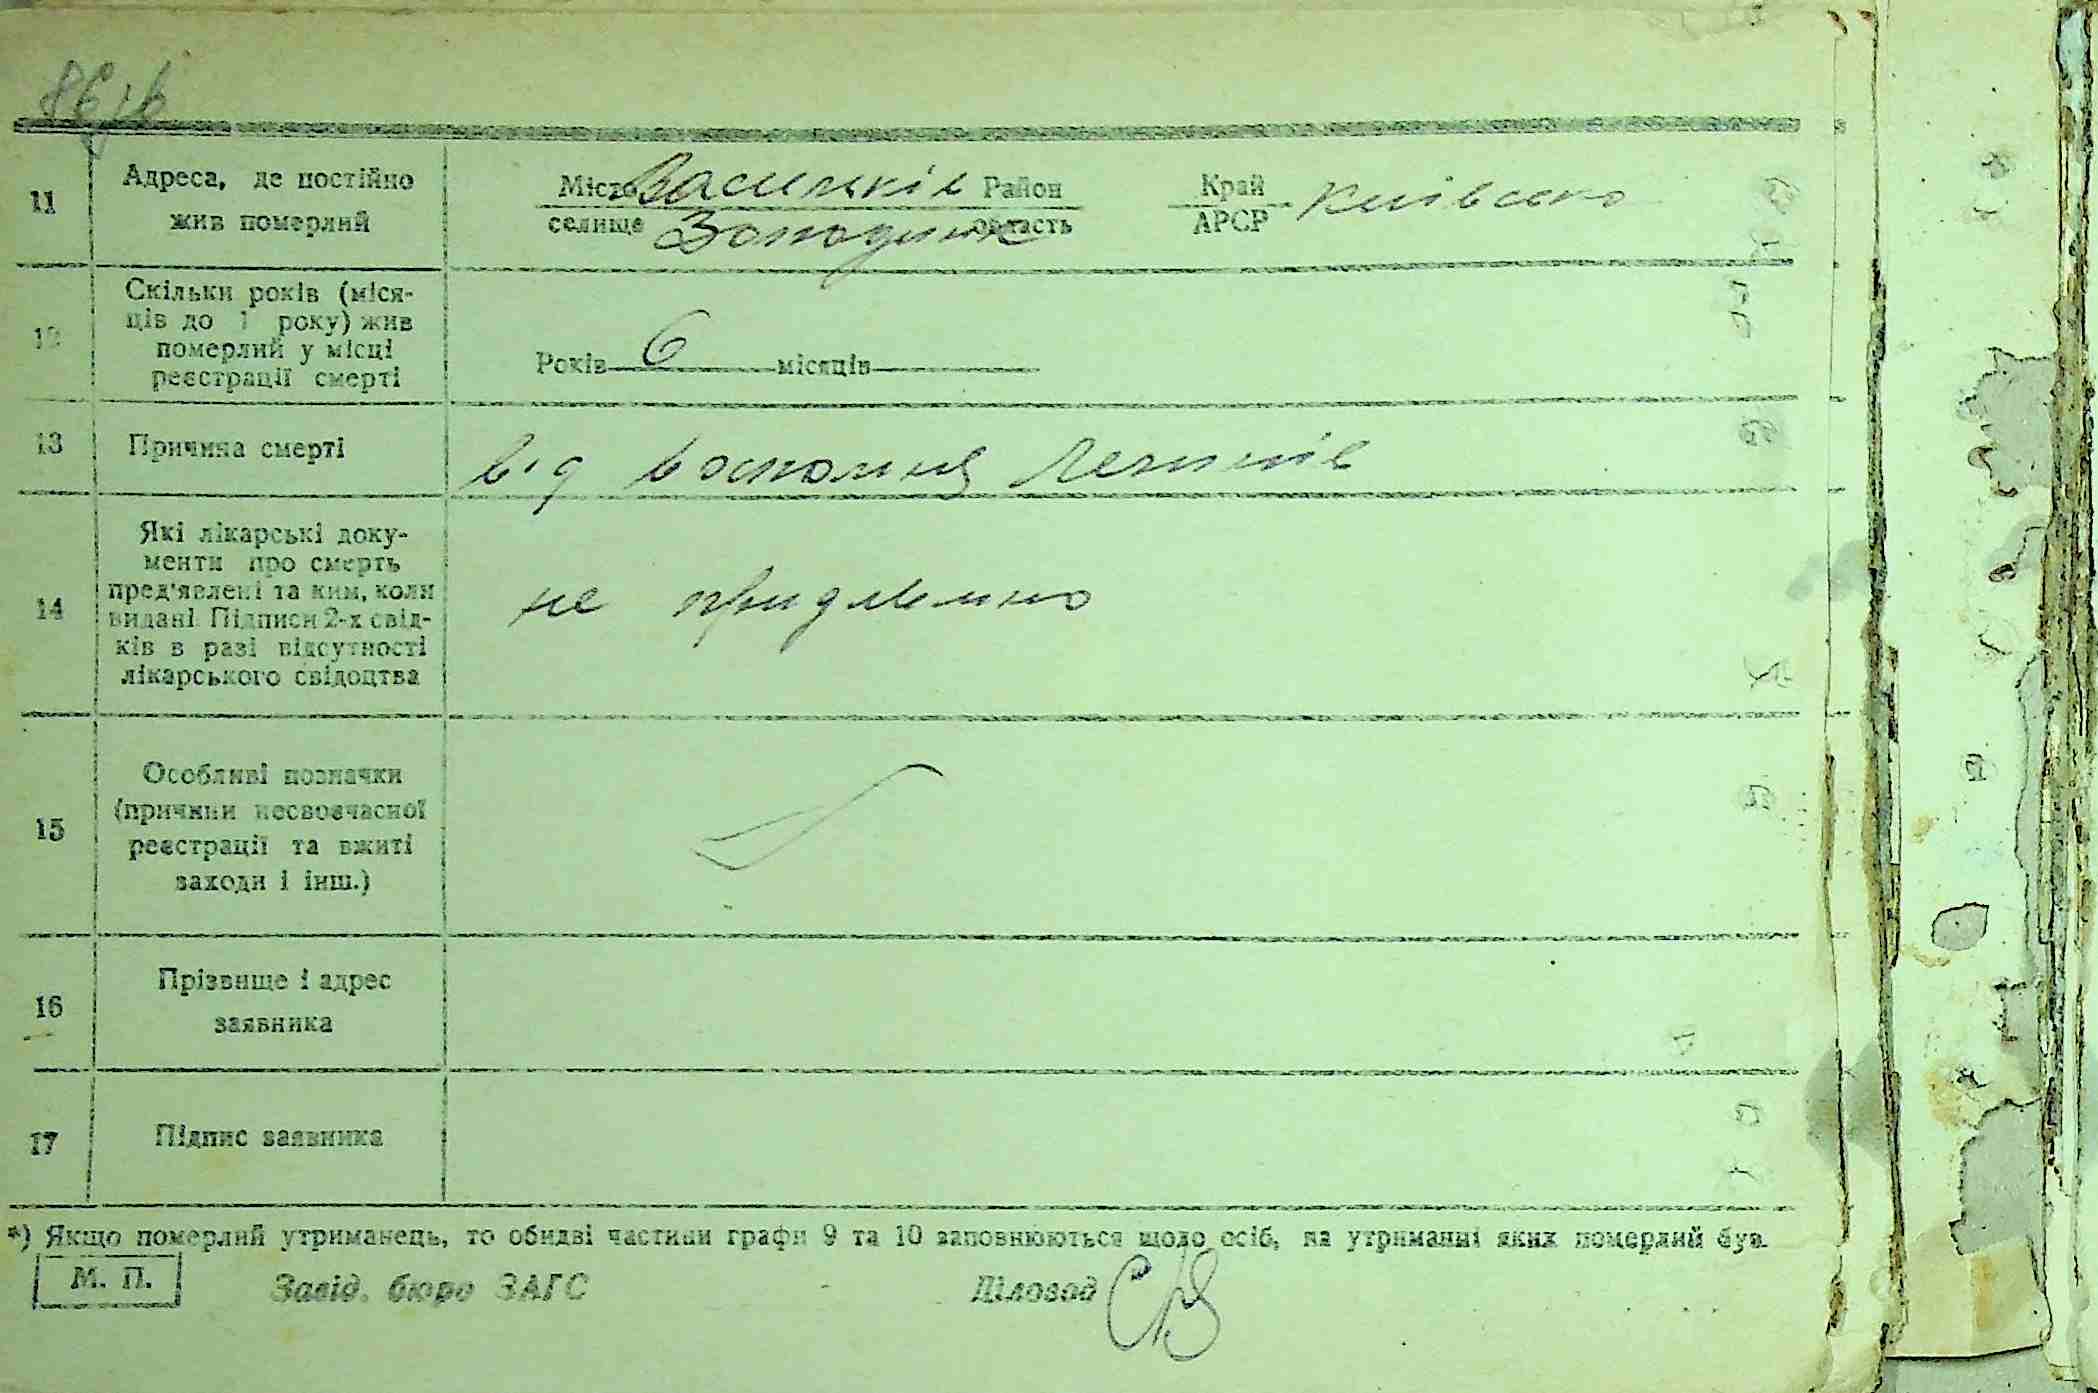 11
Адреса, де постійно
жив померлий
Місто Васильків Район
селище область
Край
АРСР
12
Скільки років (міся-
ців до 1 року) жив
померлий у місці
реєстрації смерті
Років 6 місяців
13
Причина смерті
від воспол
14
Які лікарські доку-
менти про смерть
пред'явлені та ким, коли
видані Підписи 2-х свід-
ків в разі відсутності
лікарського свідоцтва
не
15
Особливі позначки
(причини несвоєчасної
реєстрації та вжиті
заходи і інш.)
16
Прізвище і адрес
заявника
17
Підпис заявника
*) Якщо померлий утриманець, то обидві частини графи 9 та 10 заповнюються щодо осіб, на утриманні яких померлий був.
М. П.
Завід. бюро ЗАГС
Діловод